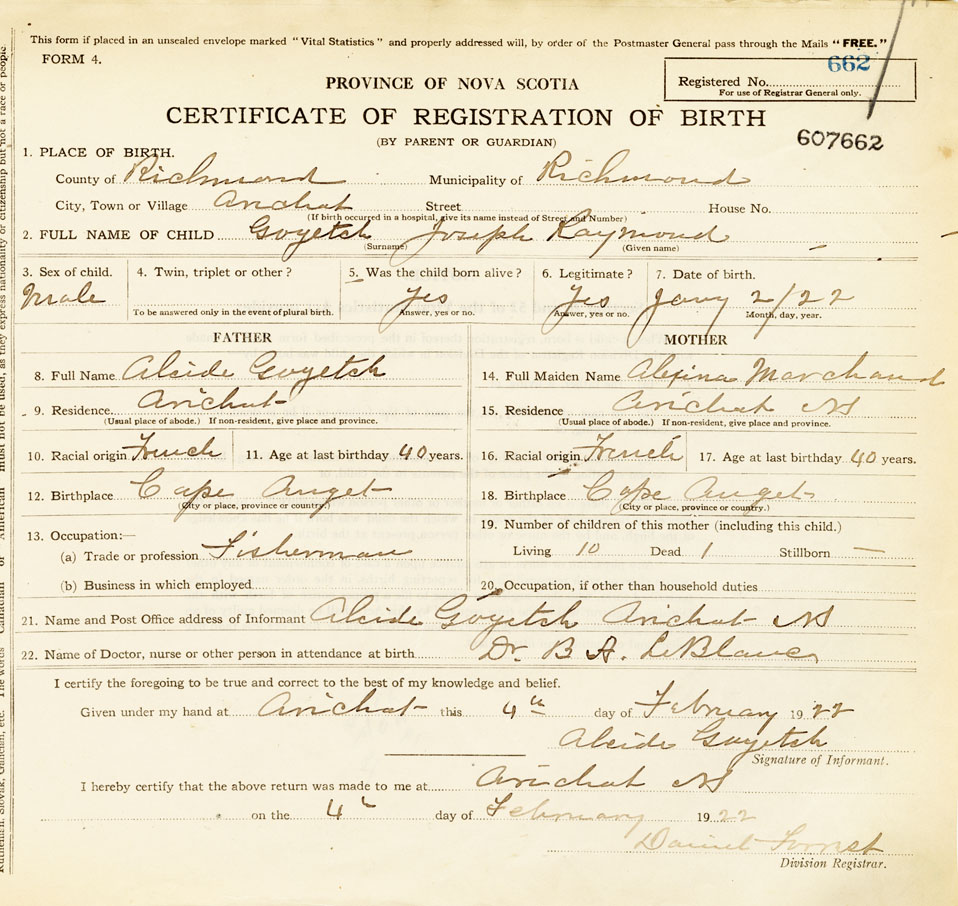 This form if placed in an unsealed envelope marked "Vital Statistics" and properly addressed will, by order of the Postmaster General pass through the Mails "FREE."
FORM 4.
662
Registered No.
For use of Registrar General only.
PROVINCE OF NOVA SCOTIA
CERTIFICATE OF REGISTRATION OF BIRTH
(BY PARENT OR GUARDIAN)
607662
1. PLACE OF BIRTH.
County of Richmond Municipality of Richmond
City, Town or Village Arichat Street House No.
(If birth occurred in a hospital, give its name instead of Street and Number)
2. FULL NAME OF CHILD Goyetch Joseph Raymond
(Surname) (Given name)
3. Sex of child. 4. Twin, triplet or other? 5. Was the child born alive? 6. Legitimate? 7. Date of birth.
Male Yes Yes Jany 2/22
To be answered only in the event of plural birth. Answer, yes or no. Answer, yes or no. Month, day, year.
FATHER
8. Full Name Alcide Goyetch
9. Residence. Arichat
(Usual place of abode.) If non-resident, give place and province.
10. Racial origin French 11. Age at last birthday 40 years.
12. Birthplace Cape Auget
(City or place, province or country.)
13. Occupation:—
(a) Trade or profession Fisherman
(b) Business in which employed
MOTHER
14. Full Maiden Name Alexina Marchand
15. Residence Arichat NS
(Usual place of abode.) If non-resident, give place and province.
16. Racial origin French 17. Age at last birthday 40 years.
18. Birthplace Cape Auget
(City or place, province or country.)
19. Number of children of this mother (including this child.)
Living 10 Dead 1 Stillborn —
20. Occupation, if other than household duties
21. Name and Post Office address of Informant Alcide Goyetch Arichat NS
22. Name of Doctor, nurse or other person in attendance at birth Dr. B A. LeBlanc
I certify the foregoing to be true and correct to the best of my knowledge and belief.
Given under my hand at Arichat this 4th day of February 1922
Alcide Goyetch
Signature of Informant.
I hereby certify that the above return was made to me at Arichat NS
on the 4th day of February 1922
Daniel
Division Registrar.